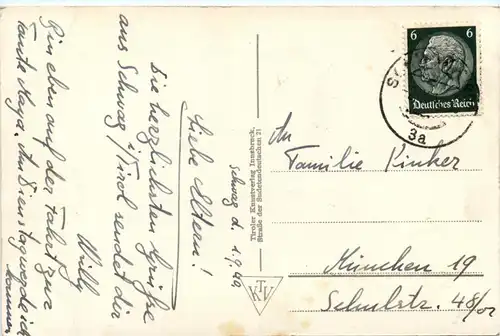 Schwaz d. 1.9.40
Liebe Eltern!
Die herzlichsten Grüße
aus Schwaz i/Tirol sendet dir
Willy
Bin eben auf der Fahrt zur
Tante Maya. Am Dienstag werde ich
kommen
Tiroler Kunstverlag Innsbruck,
Straße der Sudetendeutschen 71
KTV
6 6
Deutsches Reich
3a
An
Familie Pinker
München 19
Schulstr. 48/